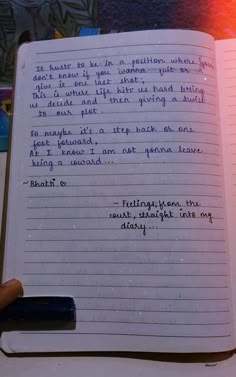 It hurts to be in a position where you
don't know if you wanna quit or
give it one last shot,
This is where life hits us hard letting
us decide and then giving a twist
to our plot.
So maybe it's a step back or one
foot forward,
As I know I am not gonna leave
being a coward...
- Bhakti
- Feelings from the
court, straight into my
diary...